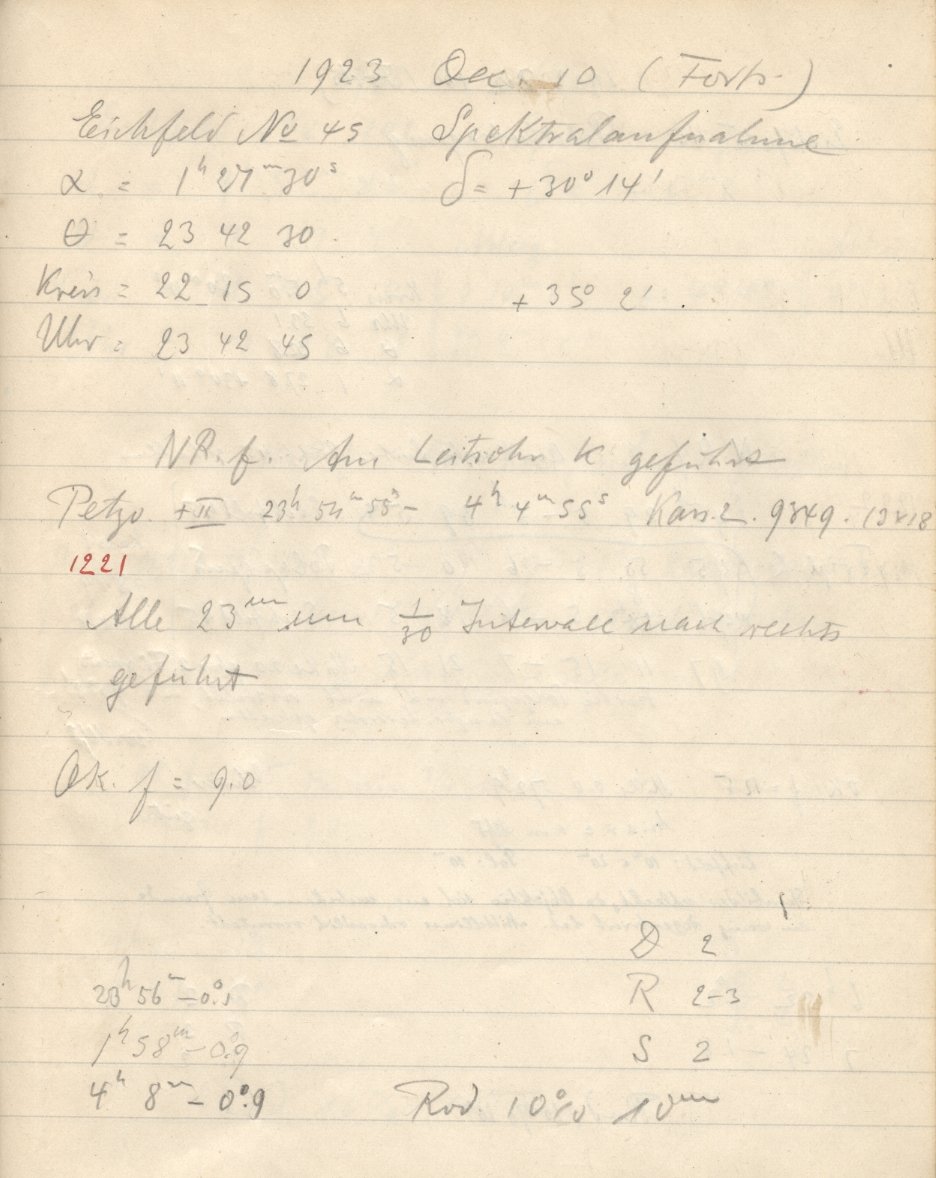 1923 Dec. 10 (Forts.)
Eichfeld No 45 Spektralaufnahme
α = 1h 27m 30s δ = +30° 14'
θ = 23 42 30.
Kreis = 22 15 0 +35° 2'.
Uhr = 23 42 45
NR. f. Am Leitrohr K geführt
Petzv. + II 23h 54m 55s - 4h 4m 55s Kass. 2. 9x49. 13x18
1221
Alle 23m um 1/30 Intervall nach rechts
geführt
Ok. f = 9.0
D 2
23h 56m -0°.1 R 2-3
1h 58m -0°.9 S 2
4h 8m -0°.9 Rod. 10% 10m